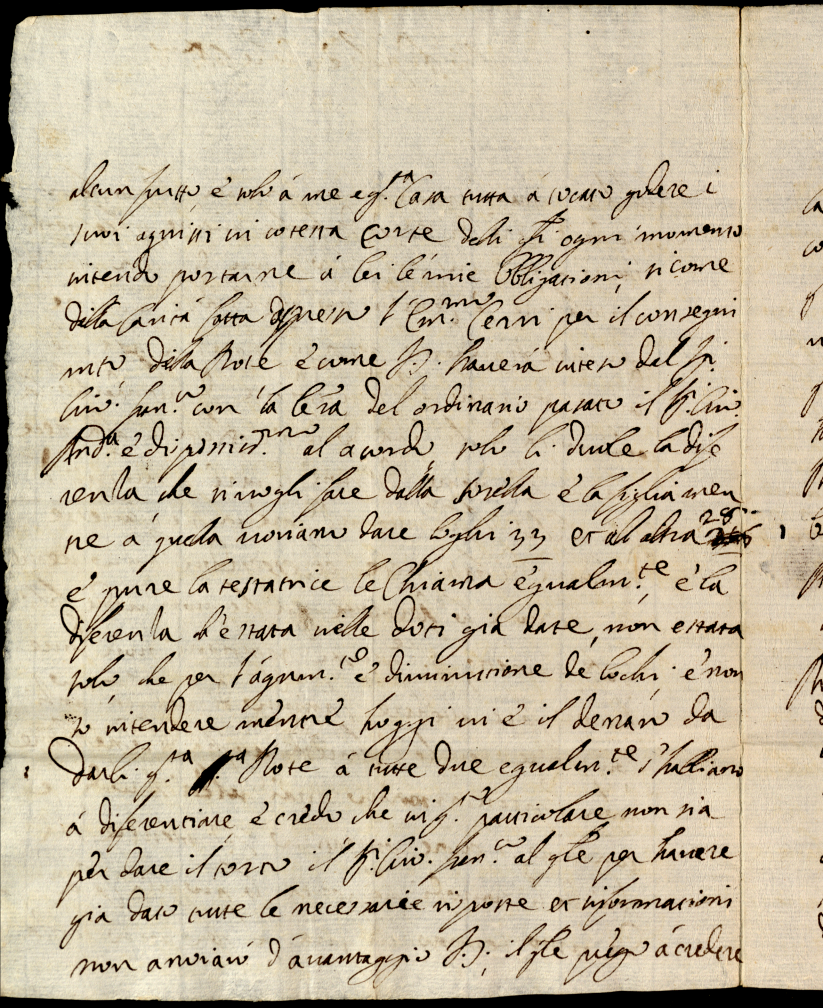 alcun frutto, é solo á me e q.ta Casa tutta á tocato godere i
suoi in cotesta Corte delli ogni momento
intendo portarne á lei le mie obbligationi, si come
della Carità fatta appresso l'Em.mo Cenni per il consegui
mto della Dote é come havera inteso dal
con la lẽra del ordinario pasato il
é dispostis.mo al acordo solo li duole la dife
renza che si vogli fare dalla sorella é la figlia men
ne á quela voriano dare loghi 33 et al altra 28
e pure la testatrice le Chiama egualm.te é la
diferenza ch'é stata nelle doti gia date, non é stata
solo, che per l'agum.to é diminutione de lochi é non
so intendere mentre hoggi vi é il denaro da
darli q.ta Dote á tutte due egualm.te s'habbiano
á diferentiare, é credo che in q.to particolare non sia
per dare il torto il al qle per havere
gia dato tutte le necessarie risposte et informationi
non d'avantaggio il qle prego á credere